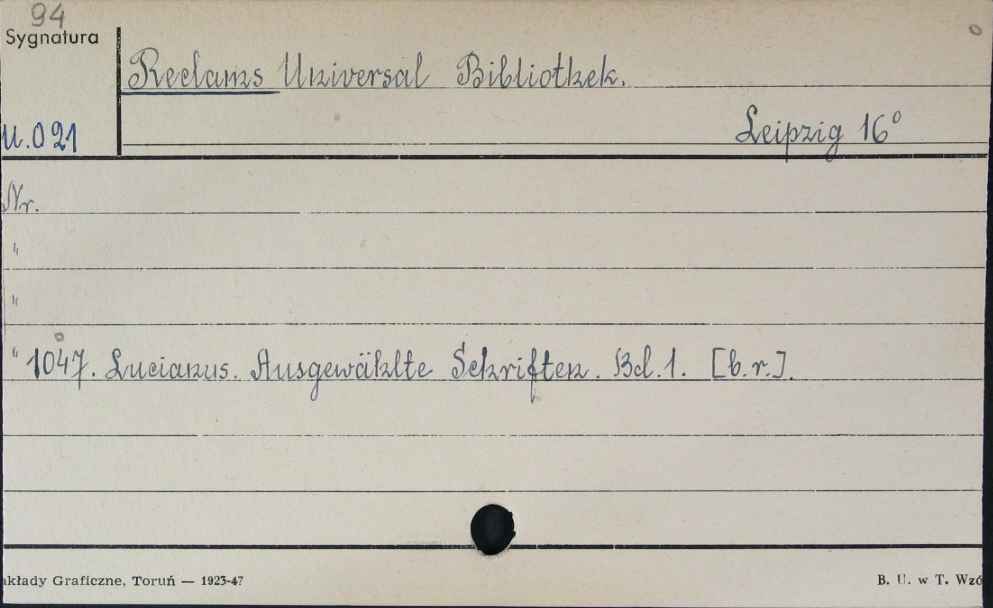 94
Sygnatura
Reclams Universal Bibliothek.
U.021
Leipzig 16°
Nr.
"
"
" 1047. Lucianus. Ausgewählte Schriften. Bd. 1. [b.r.].
akłady Graficzne, Toruń — 1923-47
B. U. w T. Wzó